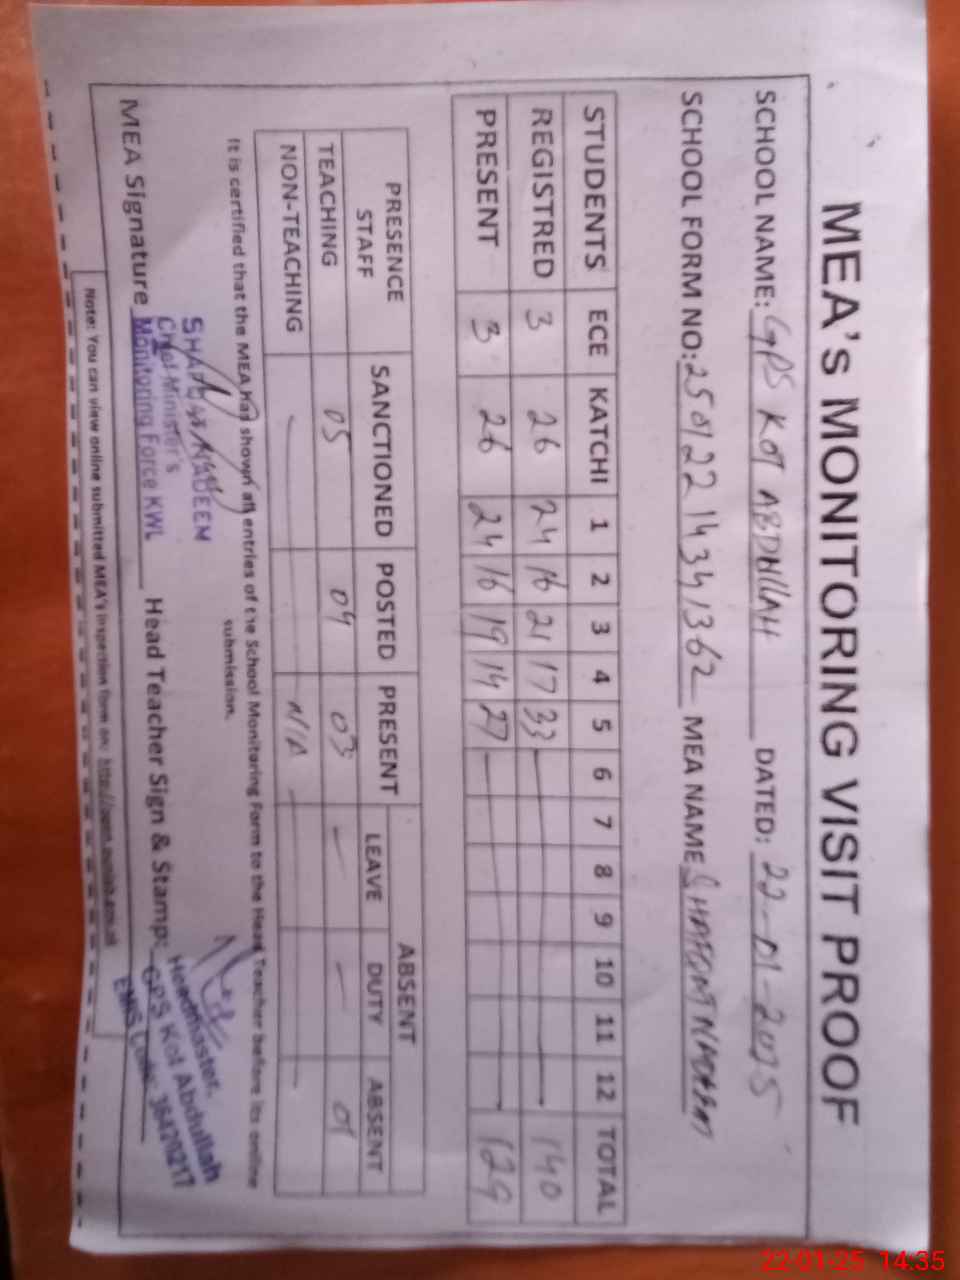 MEA's MONITORING VISIT PROOF
SCHOOL NAME: GPS KOT ABDULLAH DATED: 22-01-2025
SCHOOL FORM NO: 25012214341362 MEA NAME
STUDENTS ECE KATCHI 1 2 3 4 5 6 7 8 9 10 11 12 TOTAL
REGISTRED 3 26 24 16 21 17 33 140
PRESENT 3 26 24 16 19 14 27 129
PRESENCE STAFF SANCTIONED POSTED PRESENT ABSENT
LEAVE DUTY ABSENT
TEACHING 05 04 03 - - 01
NON-TEACHING - N/A
It is certified that the MEA has shown all entries of the School Monitoring Form to the Head Teacher before its online
submission.
MEA Signature Head Teacher Sign & Stamp:
NADEEM
Chief Minister's
Monitoring Force KWL
Headmaster
GPS Kot Abdullah
EMIS Code: 36420217
Note: You can view online submitted MEA's inspection form on:
22-01-25 14:35